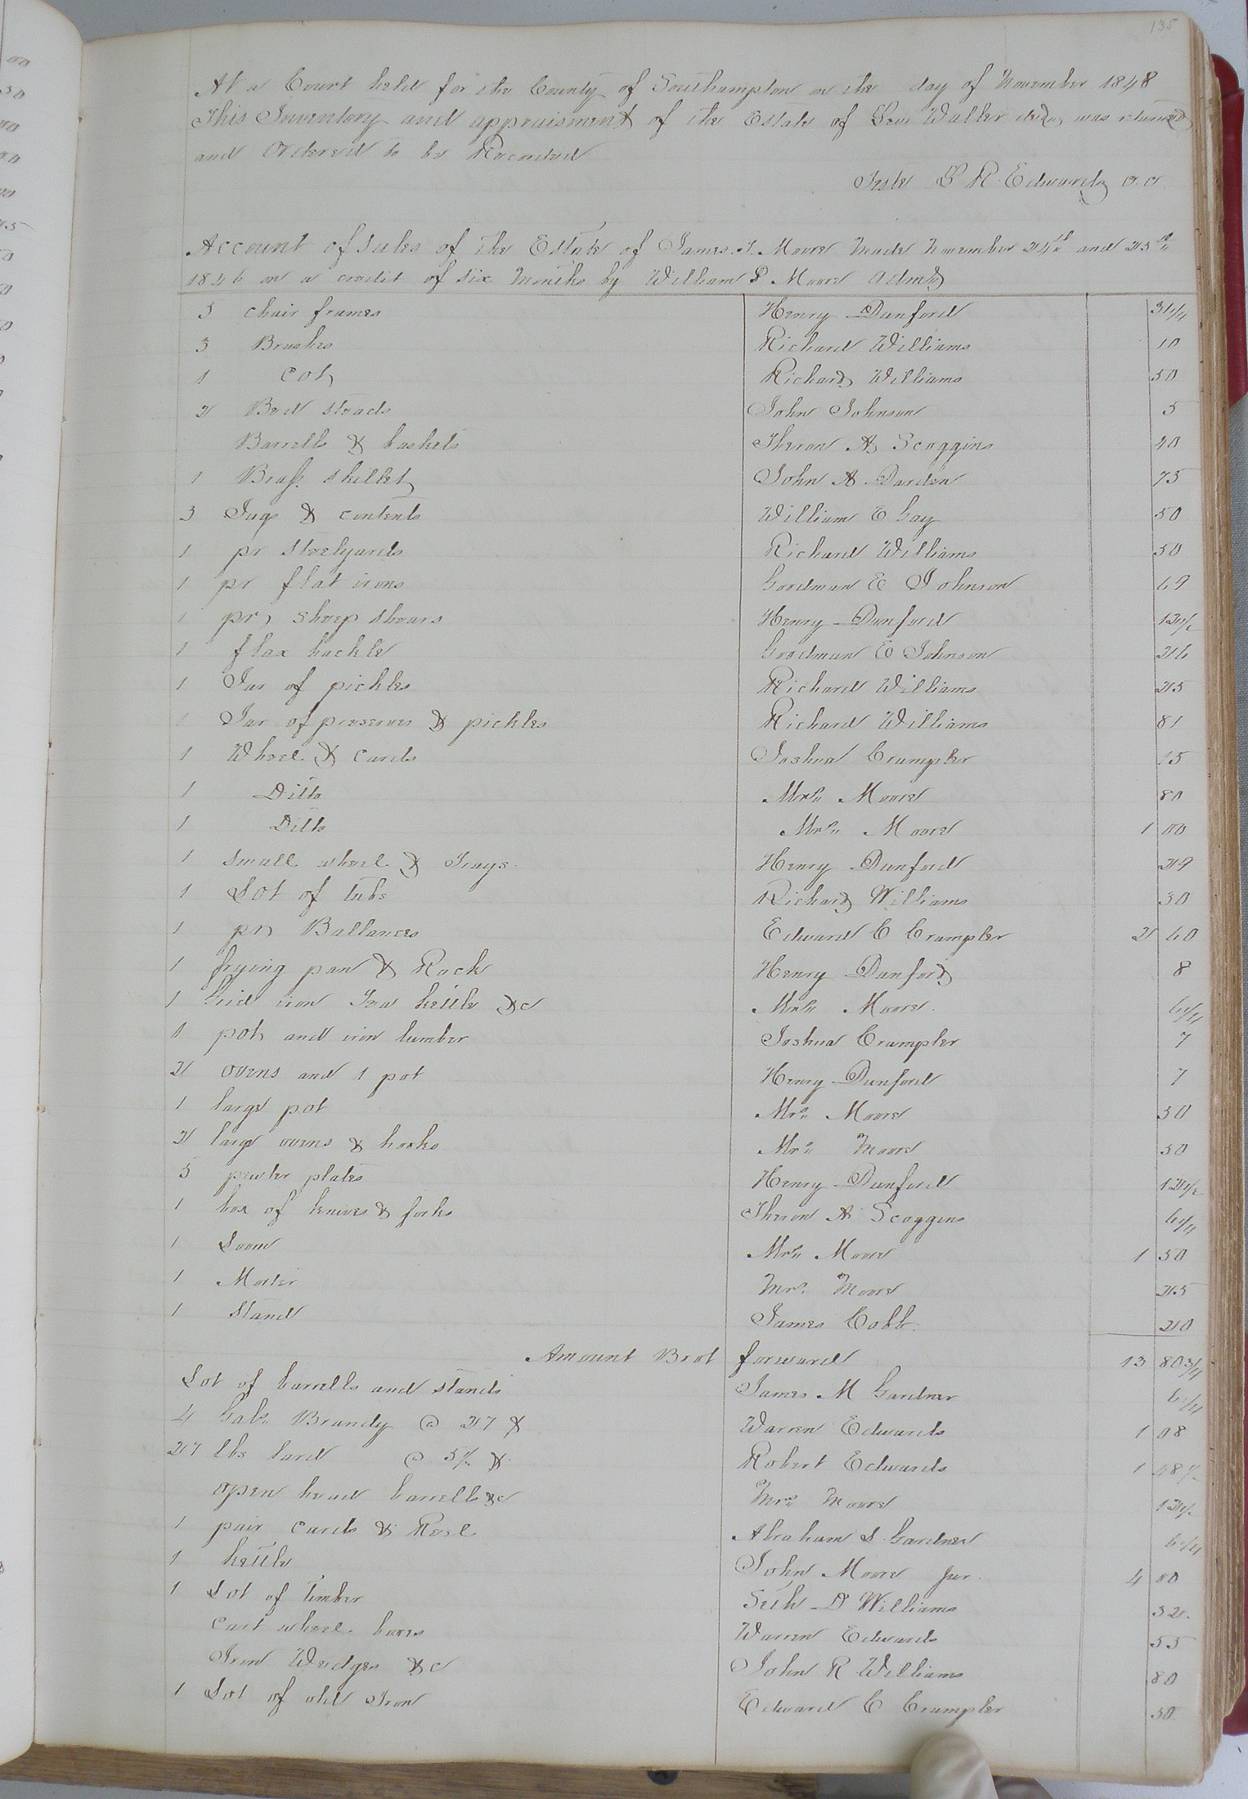 135
At a Court held for the County of Southampton on the day of November 1848
This Inventory and appraisment of the Estate of Walker decd, was returned
and Ordered to be Recorded
Teste L R Edwards c.c.
Account of Sales of the Estate of James J. Moore Made November 24th and 25th
1846 on a credit of six Months by William P Moore Admr
3 chair frames Henry Dunford 31 1/4
3 Brushes Richard Williams 10
1 Cot Richard Williams 50
2 Bed steads John Johnson 5
Barrells & baskets Theron A Scoggins 40
1 Brass skillet John A Darden 75
3 Jugs & contents William E Gay 50
1 pr Steelyards Richard Williams 50
1 pr flat irons Goodman E Johnson 69
1 pr sheep shears Henry Dunford 12 1/2
1 flax hackle Goodman E Johnson 26
1 Jar of pickles Richard Williams 25
1 Jar of preserves & pickles Richard Williams 81
1 Wheel & cards Joshua Crumpler 15
1 Ditto Mrs Moore 80
1 Ditto Mrs Moore 1 00
1 small wheel & Trays Henry Dunford 29
1 Lot of tubs Richard Williams 30
1 pr Ballances Edward C Crumpler 2 60
1 frying pan & Rack Henry Dunford 8
1 Grid iron Tea kettle &c Mrs Moore 6 1/4
1 pot and iron lumber Joshua Crumpler 7
2 ovens and 1 pot Henry Dunford 7
1 large pot Mrs Moore 30
2 large ovens & hooks Mrs Moore 50
5 pewter plates Henry Dunford 12 1/2
1 box of knives & forks Theron A Scoggins 6 1/4
1 Loom Mrs Moore 1 50
1 Morter Mrs Moore 25
1 Stand James Cobb 20
Amount Brot forward 13 80 3/4
Lot of barrells and stands James M Gardner 6 1/4
4 Gals Brandy @ 27 ¢ Warren Edwards 1 08
27 lbs lard @ 5 1/2 ¢ Robert Edwards 1 48 1/2
open head barrells &c Mrs Moore 12 1/2
1 pair cards & Reel Abraham S Gardner 6 1/4
1 kettle John Moore Jur 4 00
1 Lot of timber Seth D Williams 32
cart wheel boxes Warren Edwards 55
Iron Wedges &c John R Williams 80
1 Lot of old Iron Edward C Crumpler 50